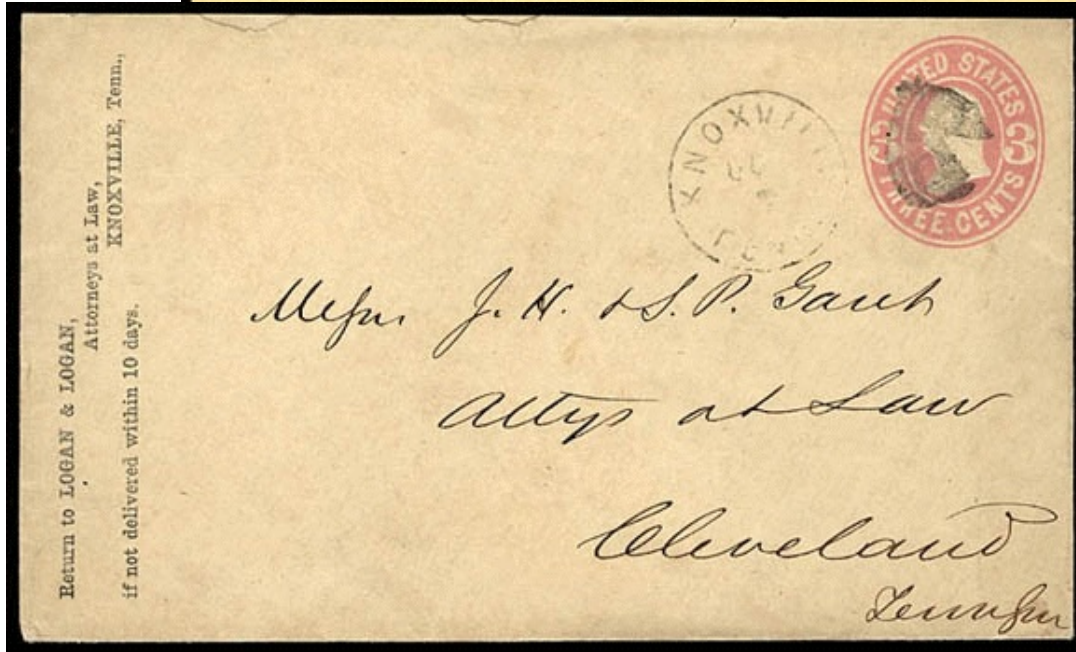 Return to LOGAN & LOGAN,
Attorneys at Law,
KNOXVILLE, Tenn.,
if not delivered within 10 days.
KNOXVILL
TENN
UNITED STATES
3 3
THREE CENTS
Messrs J. H. & S. P. Gaut
Attys at Law
Cleveland
Tennessee